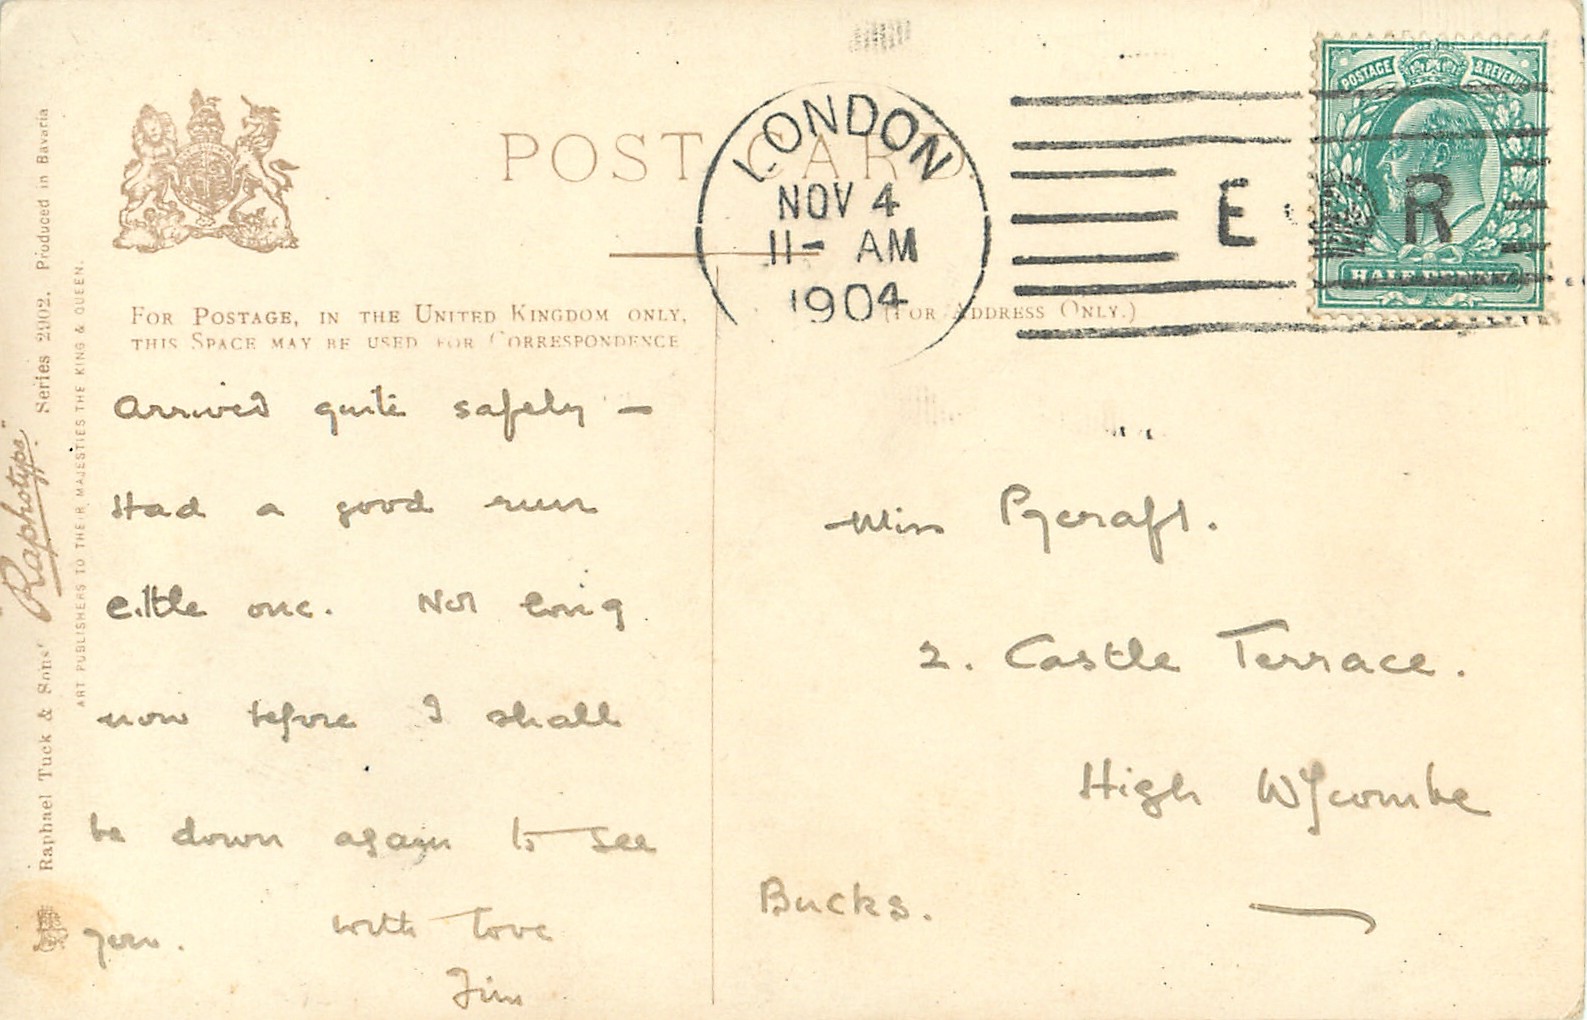 POST CARD
LONDON
NOV 4
11- AM
1904
E R
POSTAGE & REVENUE
HALF PENNY
FOR POSTAGE, IN THE UNITED KINGDOM ONLY,
THIS SPACE MAY BE USED FOR CORRESPONDENCE
(FOR ADDRESS ONLY.)
Raphael Tuck & Sons' "Raphotype" Series 2902. Produced in Bavaria
ART PUBLISHERS TO THEIR MAJESTIES THE KING & QUEEN.
Arrived quite safely —
Had a good run
little one. Not long
now before I shall
be down again to see
you. with love
Jim
Miss Pycraft.
2. Castle Terrace.
High Wycombe
Bucks.